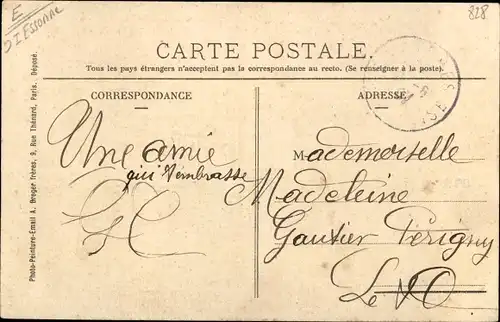 E
D I Essonne
828
CARTE POSTALE.
Tous les pays étrangers n'acceptent pas la correspondance au recto. (Se renseigner à la poste).
CORRESPONDANCE
ADRESSE
Une amie
qui t'embrasse
Mademoiselle
Madeleine
Gautier Périgny
Photo-Peinture-Email A. Breger frères, 9, Rue Thénard, Paris. Déposé.